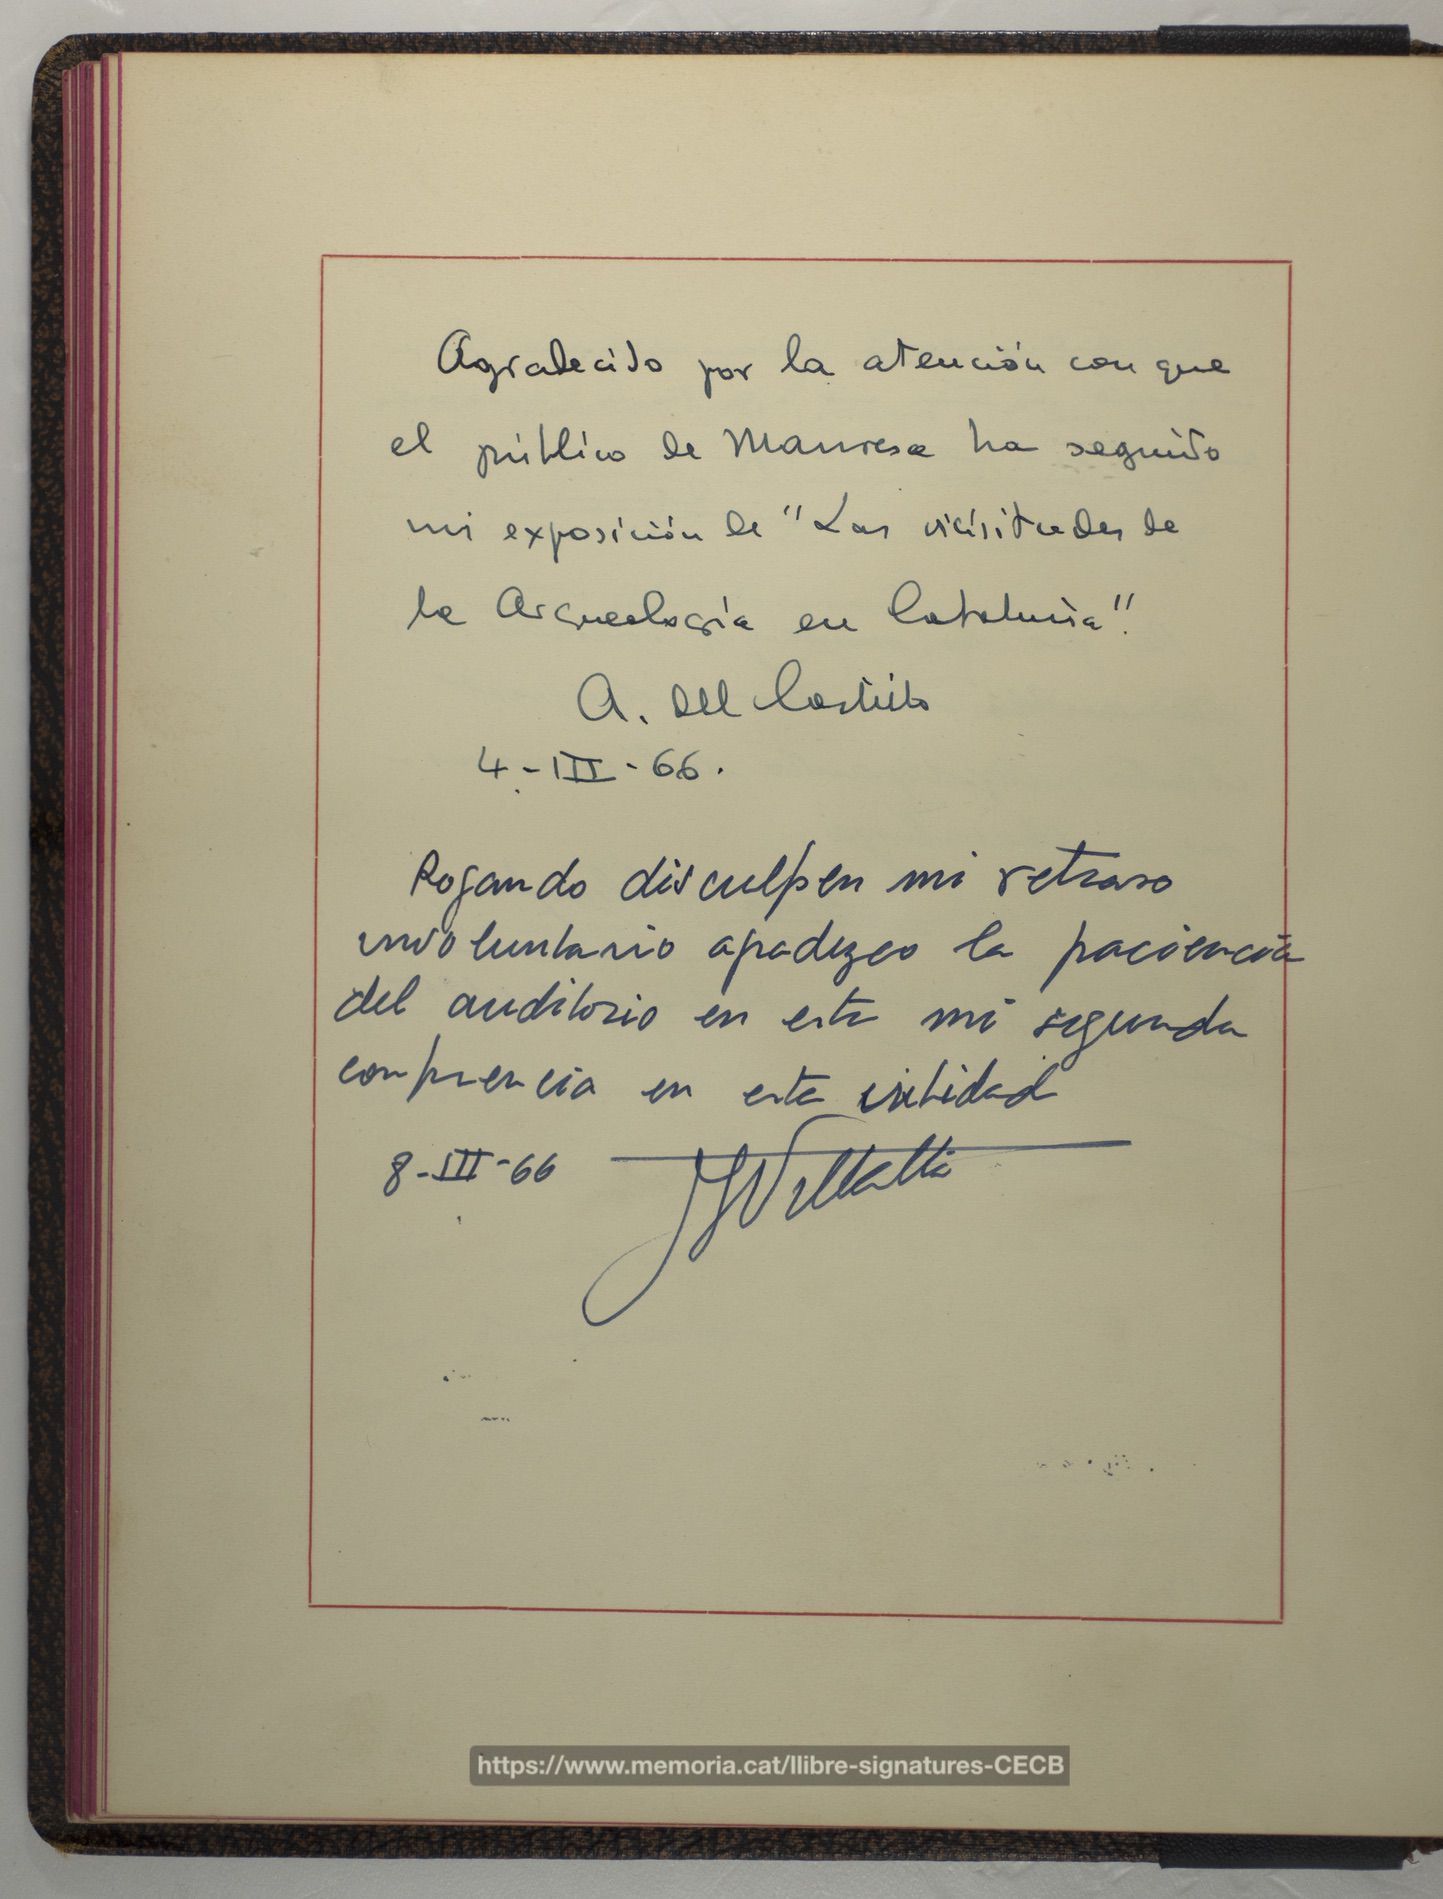 Agradecido por la atención con que
el público de Manresa ha seguido
mi exposición de "Las vicisitudes de
la Arqueología en Cataluña".
A. del Castillo
4-III-66.
Rogando disculpen mi retraso
involuntario agradezco la paciencia
del auditorio en esta mi segunda
conferencia en esta entidad
8-III-66
https://www.memoria.cat/llibre-signatures-CECB